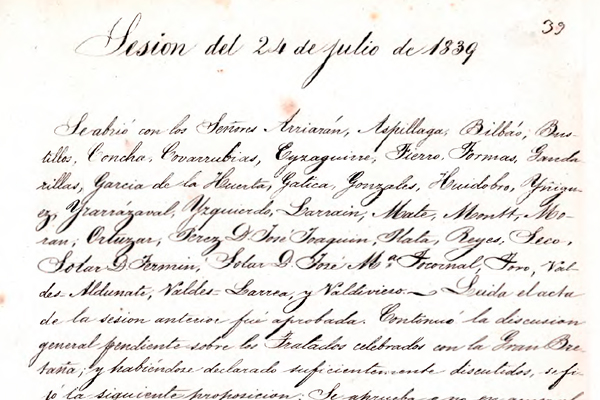 39
Sesion del 24 de julio de 1839
Se abrió con los Señores Arriarán, Aspillaga, Bilbáo, Bus-
tillos, Concha, Covarrubias, Eyzaguirre, Fierro, Formas, Ganda
rillas, Garcia de la Huerta, Gatica, Gonzales, Huidobro, Yñigu-
ez, Yrarrázaval, Yzquierdo, Larrain, Mate, Montt, Mo-
ran, Ortuzar, Perez D. José Joaquin, Plata, Reyes, Seco,
Solar D. Fermin, Solar D. José Mª. Tocornal, Toro, Val-
des-Aldunate, Valdes-Larrea, y Valdivieso. Leida el acta
de la sesion anterior fué aprobada. Continuó la discusion
general pendiente sobre los Tratados celebrados con la Gran Bre-
taña; y habiéndose declarado suficientemente discutidos, se fi-
jó la siguiente proposicion: Se aprueba o no en general